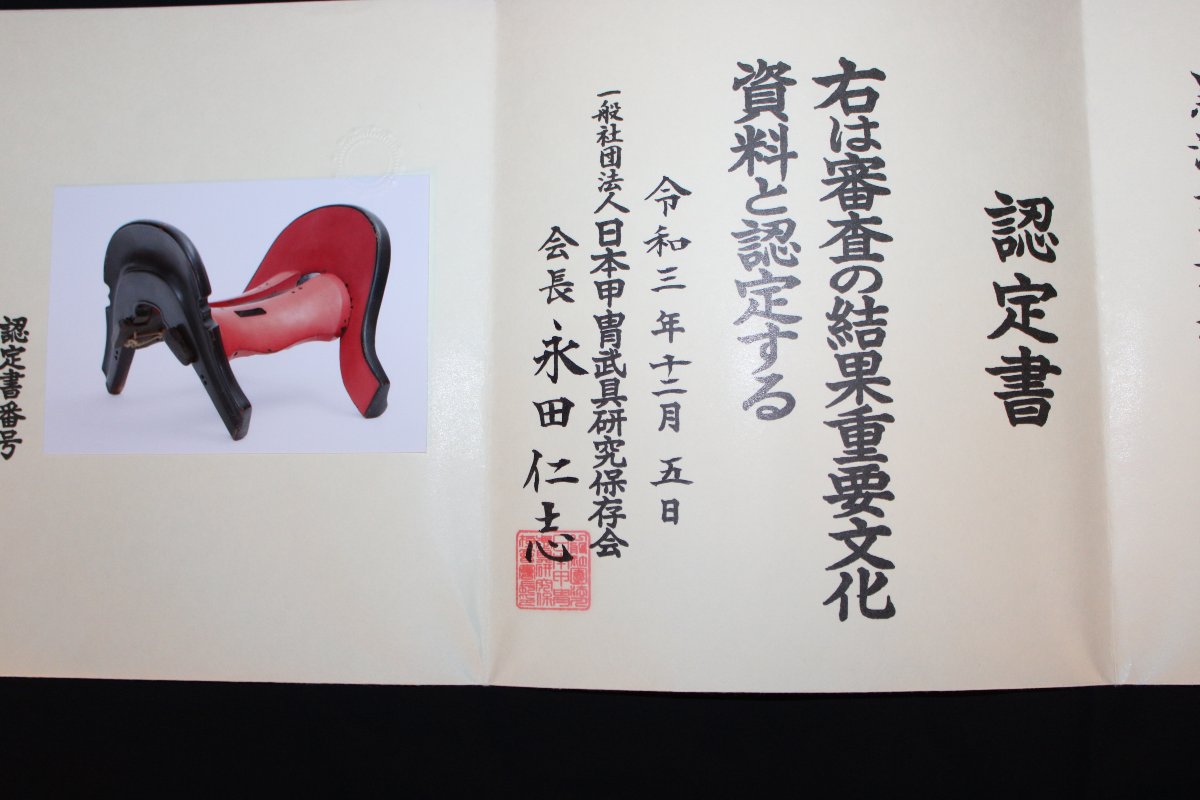 認定書
右は審査の結果重要文化
資料と認定する
令和三年十二月五日
一般社団法人日本甲冑武具研究保存会
会長 永田仁志
認定書番号